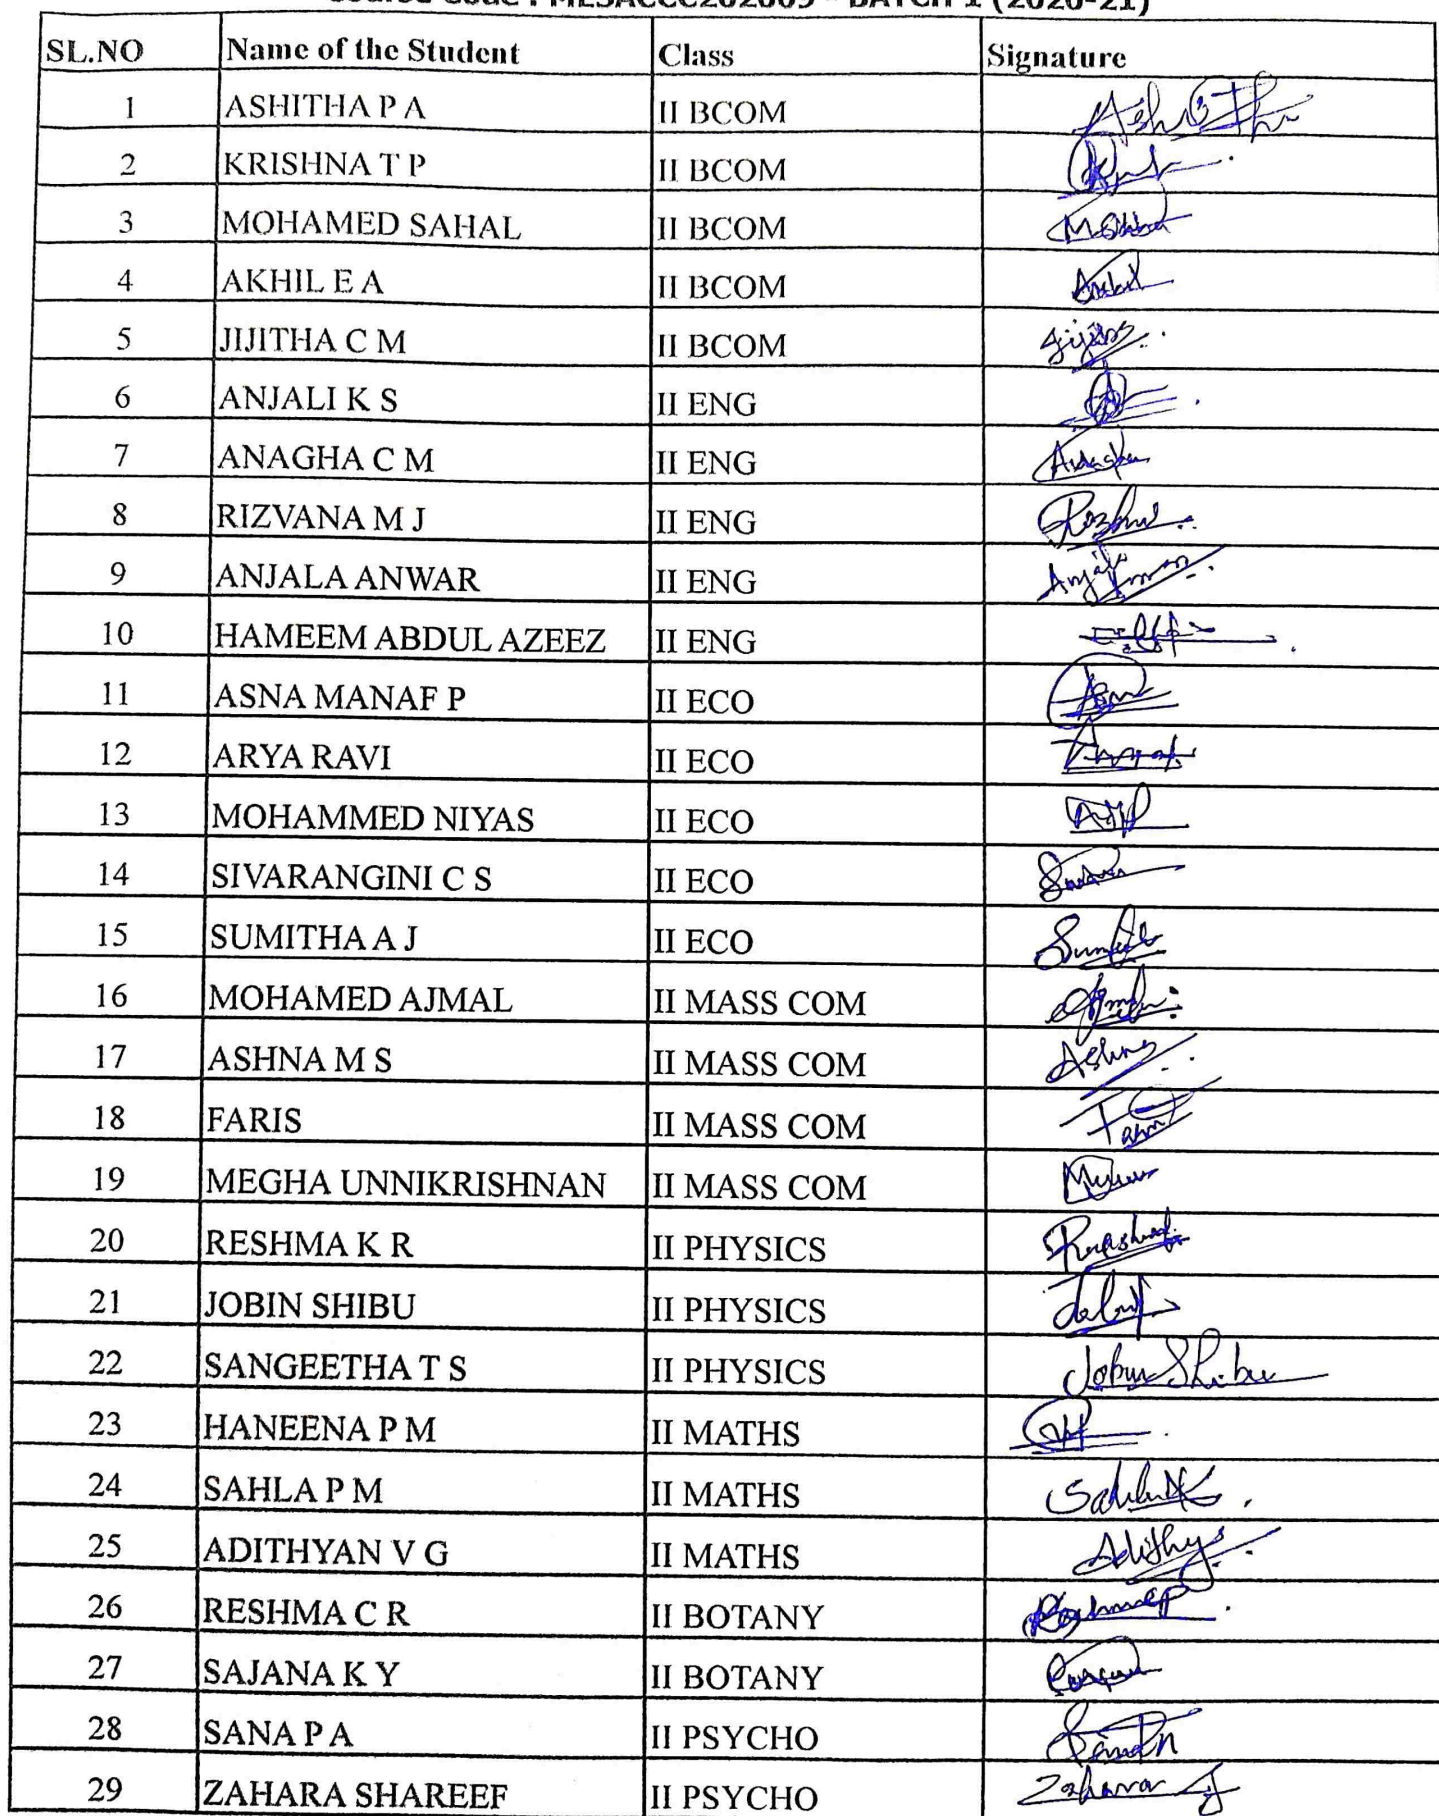 Course Code : MESACCC202005 - BATCH 1 (2020-21)
SL.NO Name of the Student Class Signature
1 ASHITHA P A II BCOM
2 KRISHNA T P II BCOM
3 MOHAMED SAHAL II BCOM
4 AKHIL E A II BCOM
5 JIJITHA C M II BCOM
6 ANJALI K S II ENG
7 ANAGHA C M II ENG
8 RIZVANA M J II ENG
9 ANJALA ANWAR II ENG
10 HAMEEM ABDUL AZEEZ II ENG
11 ASNA MANAF P II ECO
12 ARYA RAVI II ECO
13 MOHAMMED NIYAS II ECO
14 SIVARANGINI C S II ECO
15 SUMITHA A J II ECO
16 MOHAMED AJMAL II MASS COM
17 ASHNA M S II MASS COM Ashna
18 FARIS II MASS COM
19 MEGHA UNNIKRISHNAN II MASS COM
20 RESHMA K R II PHYSICS
21 JOBIN SHIBU II PHYSICS
22 SANGEETHA T S II PHYSICS Jobin Shibu
23 HANEENA P M II MATHS
24 SAHLA P M II MATHS
25 ADITHYAN V G II MATHS
26 RESHMA C R II BOTANY
27 SAJANA K Y II BOTANY
28 SANA P A II PSYCHO
29 ZAHARA SHAREEF II PSYCHO Zahara